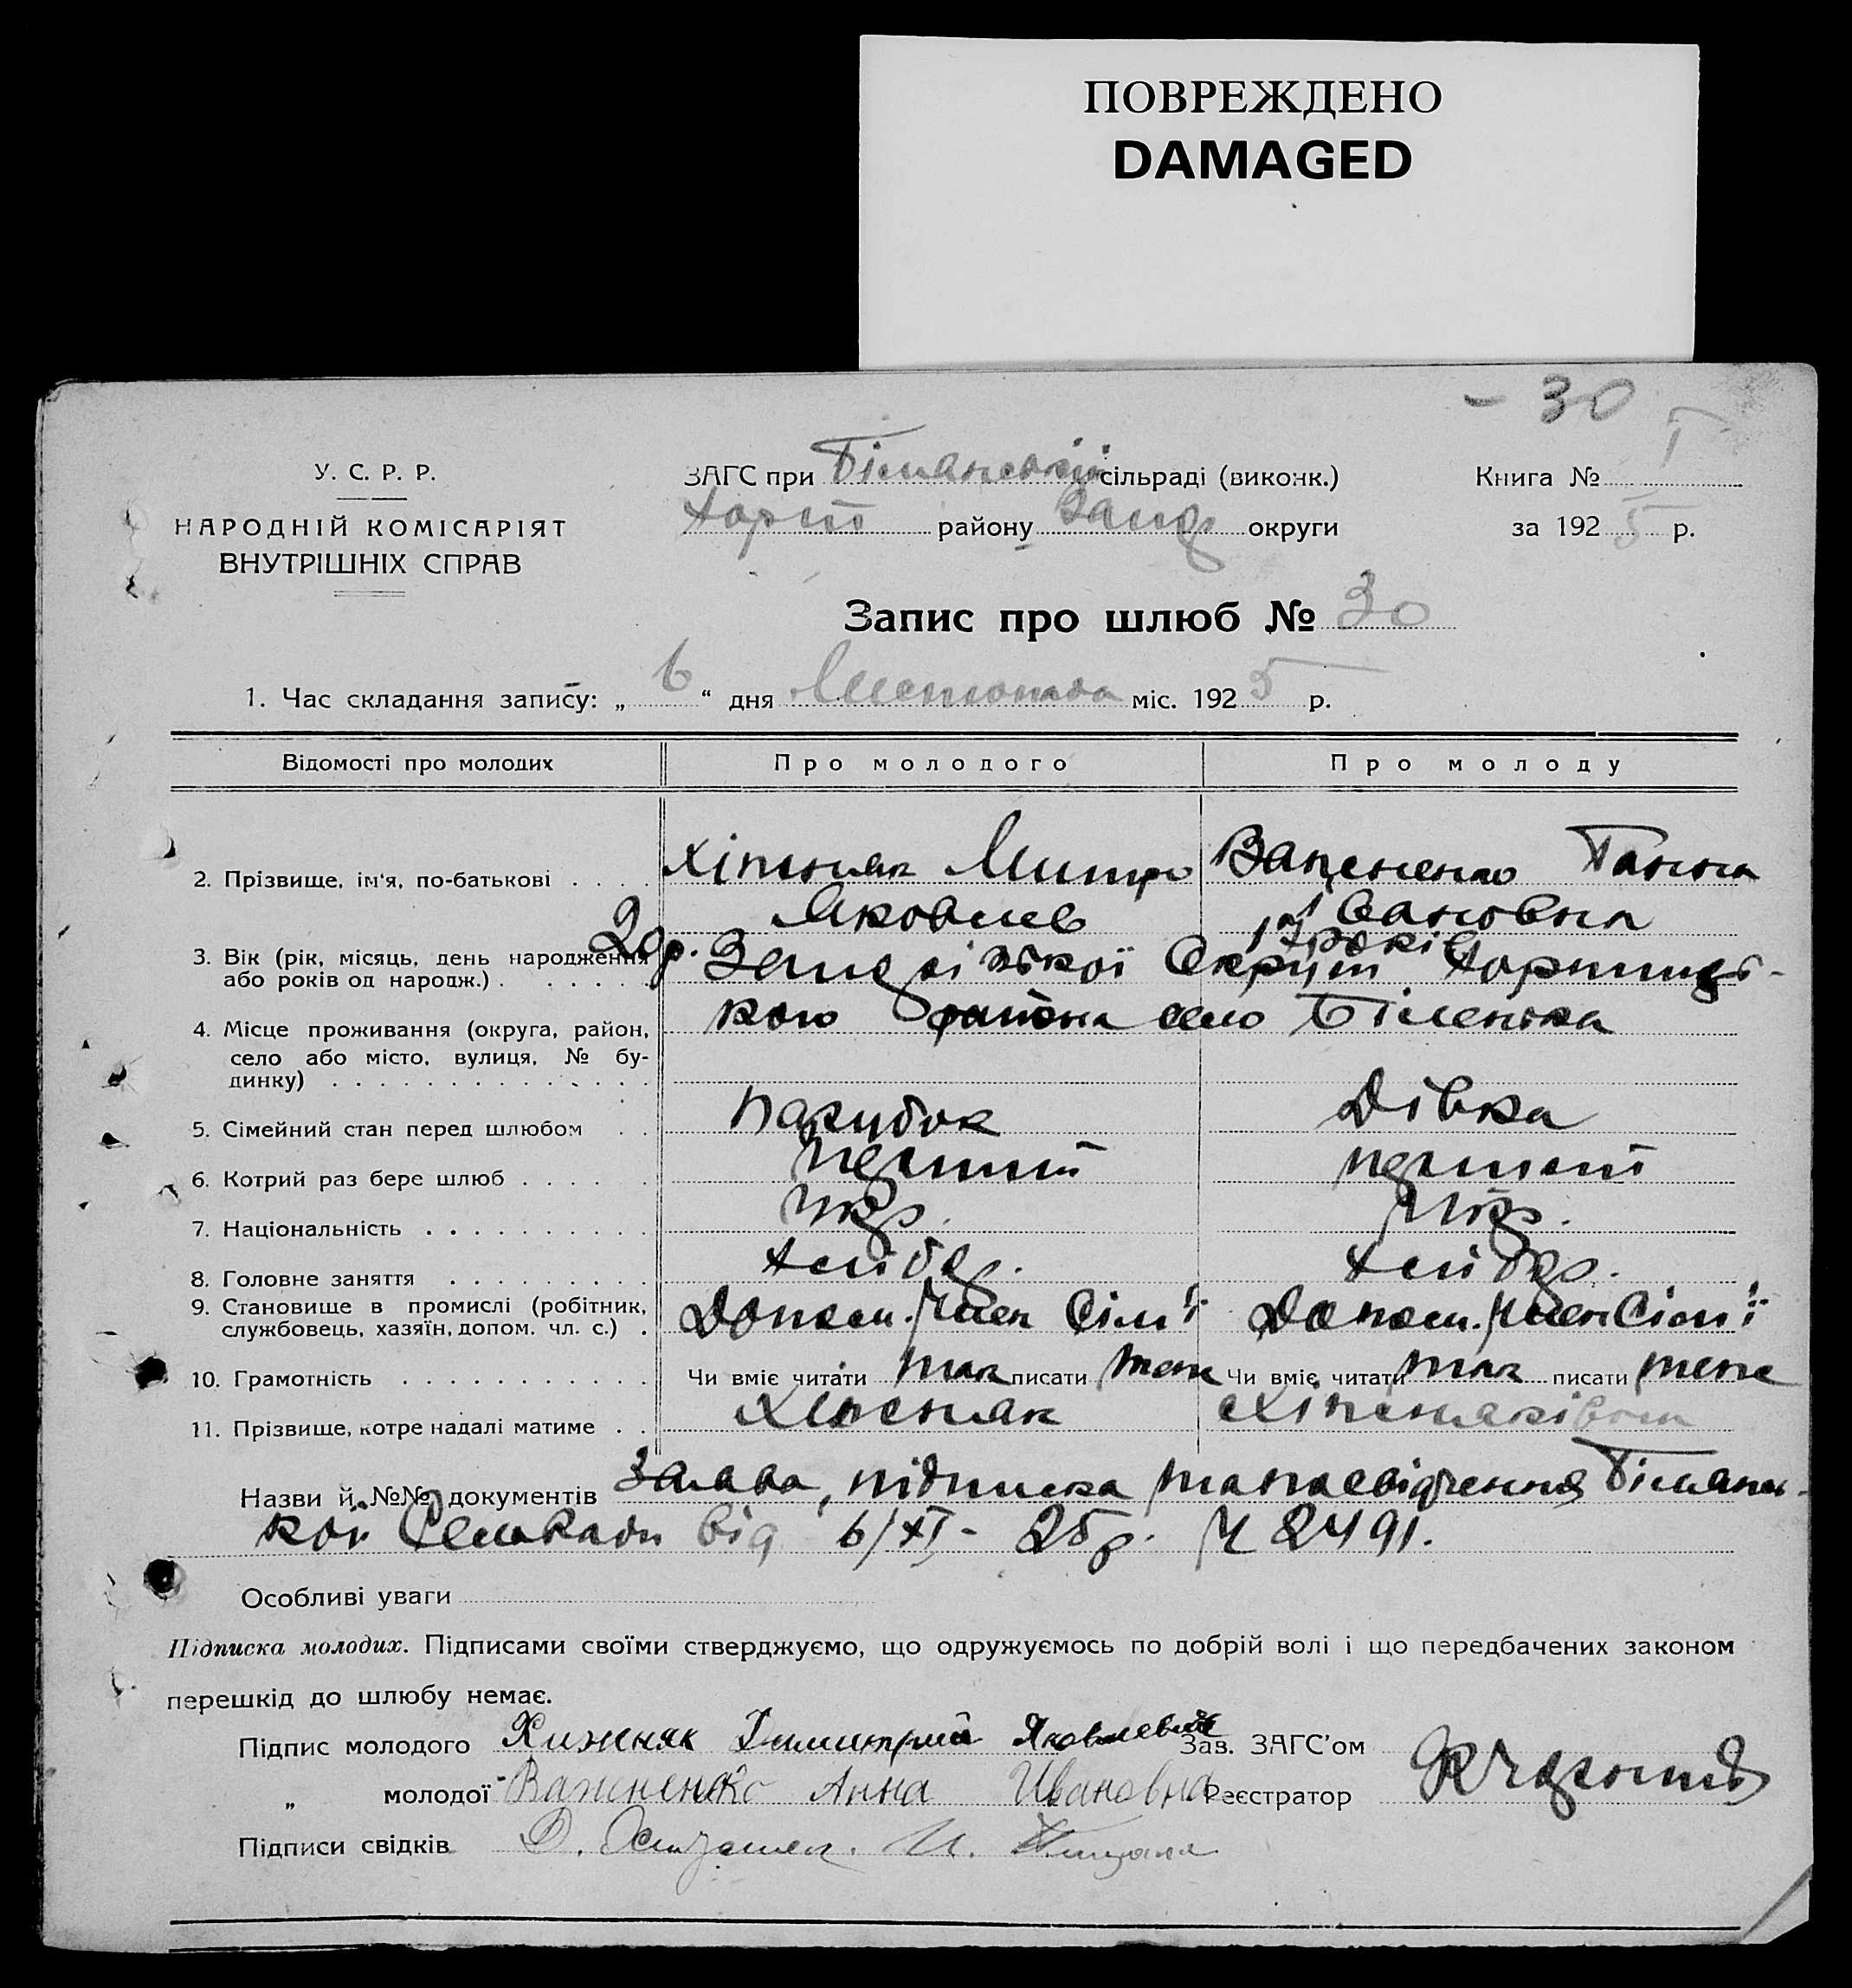 ПОВРЕЖДЕНО
DAMAGED
- 30
У. С. Р. Р.
НАРОДНІЙ КОМІСАРІЯТ
ВНУТРІШНІХ СПРАВ
ЗАГС при сільраді (виконк.)
Хорт району Запор округи
Книга № I
за 1925 р.
Запис про шлюб № 30
1. Час складання запису: „6“ дня Листопада міс. 1925 р.
Відомості про молодих Про молодого Про молоду
2. Прізвище, ім'я, по-батькові . . . . Хіжняк Митро Ганна
Яковлев Івановна
3. Вік (рік, місяць, день народження або років од народж.) . . . . . . 20р. 19 років
4. Місце проживання (округа, район, село або місто, вулиця, № будинку) . . . . . . Округи
кого района село Біленька
5. Сімейний стан перед шлюбом . . Парубок Дівка
6. Котрий раз бере шлюб . . . . . перший перший
7. Національність . . . . . . . . . Укр. Укр.
8. Головне заняття . . . . . . . . . Хлібор. Хлібор.
9. Становище в промислі (робітник, службовець, хазяїн, допом. чл. с.) . Допом. член сім'ї Допом. член сім'ї
10. Грамотність . . . . . . . . . . . Чи вміє читати так писати теж Чи вміє читати так писати теж
11. Прізвище, котре надалі матиме . . Хіженяк
Назви й №№ документів Заява, підписка та посвідчення
кої Сельради від 6/XI - 25р. Ч 2491.
Особливі уваги
Підписка молодих. Підписами своїми стверджуємо, що одружуємось по добрій волі і що передбачених законом
перешкід до шлюбу немає.
Підпис молодого Хиженяк Димитрий Яковлевич Зав. ЗАГС'ом
„ молодої Важненко Анна Ивановна Реєстратор
Підписи свідків